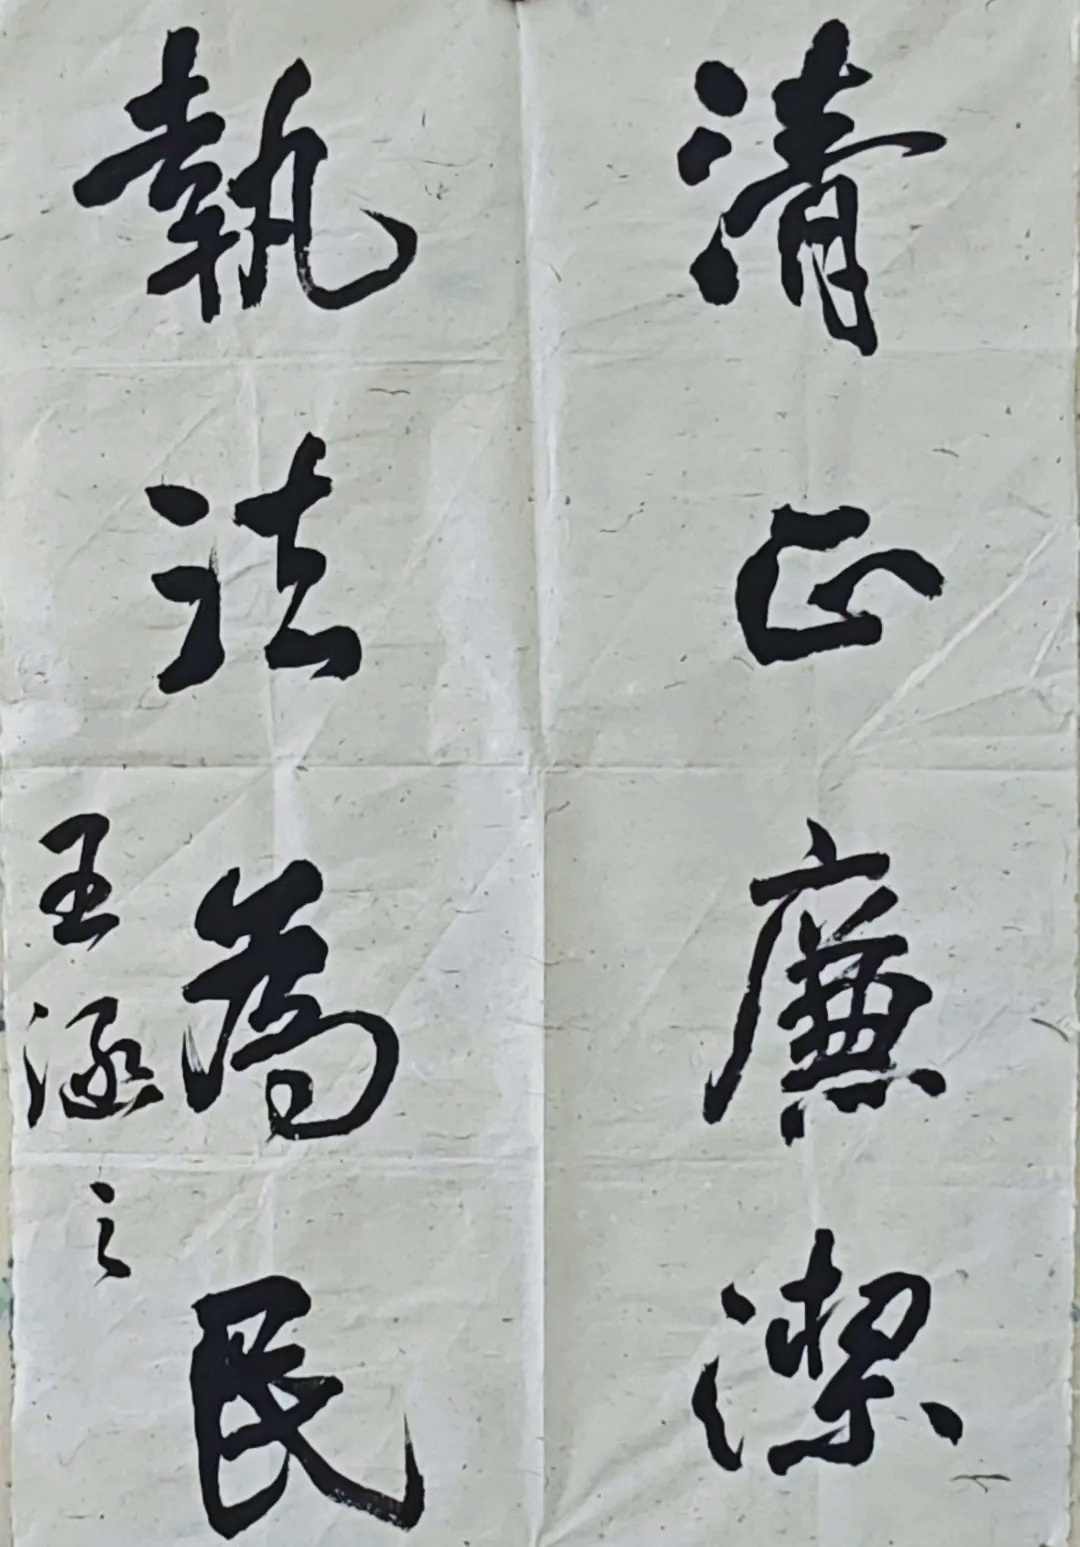 清正廉潔
執法為民
王涵之